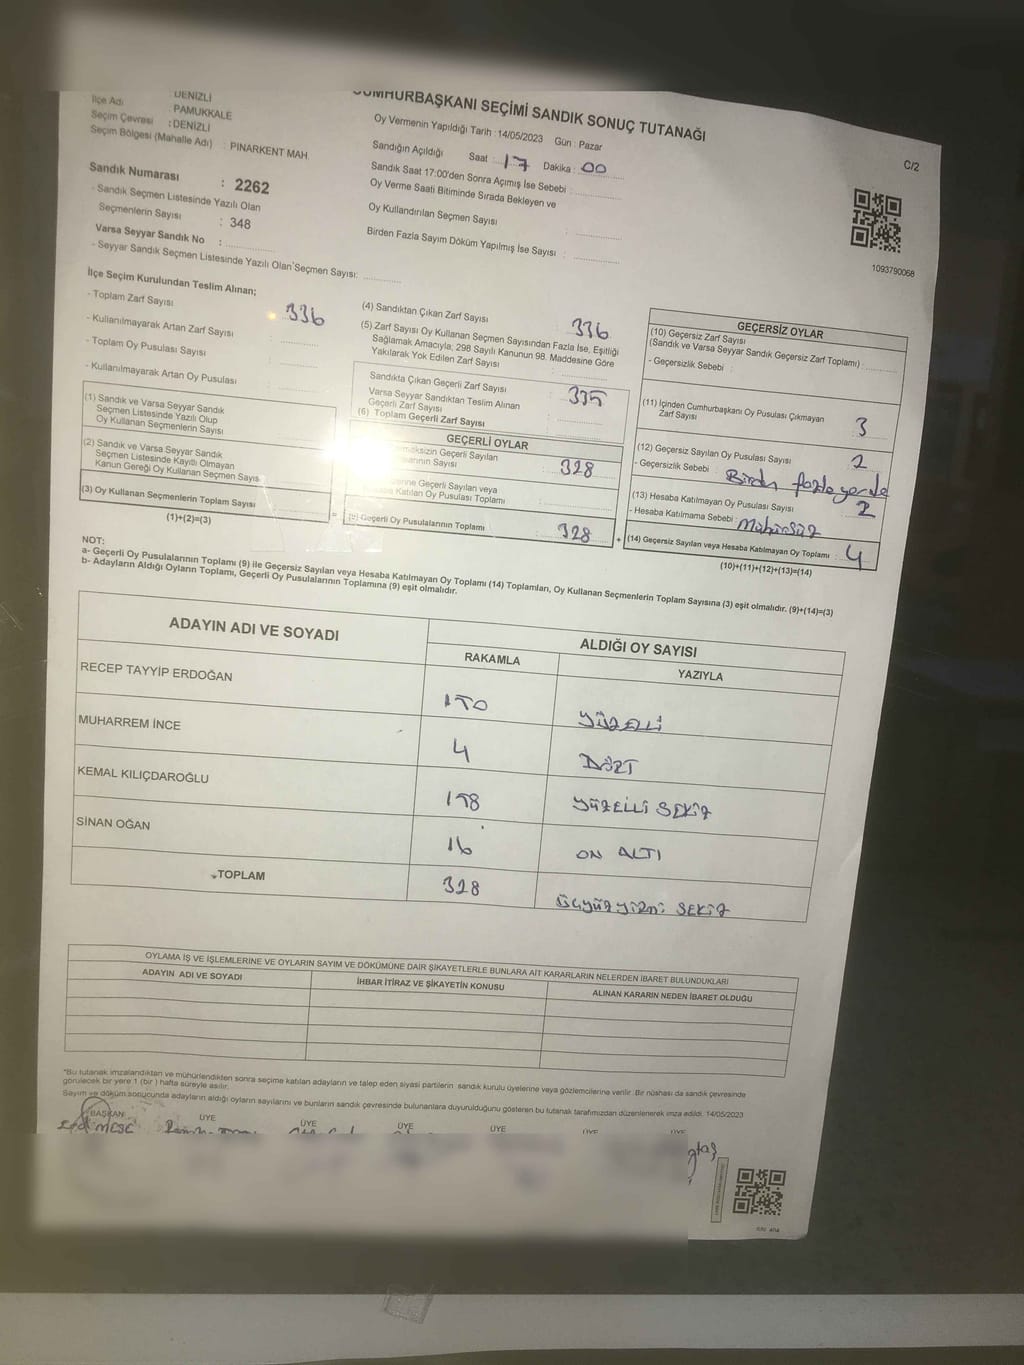 CUMHURBAŞKANI SEÇİMİ SANDIK SONUÇ TUTANAĞI
C/2
DENİZLİ
İlçe Adı PAMUKKALE
Seçim Çevresi : DENİZLİ
Seçim Bölgesi (Mahalle Adı) : PINARKENT MAH.
Sandık Numarası : 2262
- Sandık Seçmen Listesinde Yazılı Olan
Seçmenlerin Sayısı : 348
Varsa Seyyar Sandık No :
- Seyyar Sandık Seçmen Listesinde Yazılı Olan Seçmen Sayısı:
Oy Vermenin Yapıldığı Tarih : 14/05/2023 Gün : Pazar
Sandığın Açıldığı Saat : 17 Dakika : 00
Sandık Saat 17:00'den Sonra Açımış İse Sebebi :
Oy Verme Saati Bitiminde Sırada Bekleyen ve
Oy Kullandırılan Seçmen Sayısı :
Birden Fazla Sayım Döküm Yapılmış İse Sayısı :
1093790068
İlçe Seçim Kurulundan Teslim Alınan;
- Toplam Zarf Sayısı 336
- Kullanılmayarak Artan Zarf Sayısı
- Toplam Oy Pusulası Sayısı
- Kullanılmayarak Artan Oy Pusulası
(1) Sandık ve Varsa Seyyar Sandık
Seçmen Listesinde Yazılı Olup
Oy Kullanan Seçmenlerin Sayısı
(2) Sandık ve Varsa Seyyar Sandık
Seçmen Listesinde Kayıtlı Olmayan
Kanun Gereği Oy Kullanan Seçmen Sayıs
(3) Oy Kullanan Seçmenlerin Toplam Sayısı
(1)+(2)=(3)
(4) Sandıktan Çıkan Zarf Sayısı : 336
(5) Zarf Sayısı Oy Kullanan Seçmen Sayısından Fazla İse, Eşitliği
Sağlamak Amacıyla; 298 Sayılı Kanunun 98. Maddesine Göre
Yakılarak Yok Edilen Zarf Sayısı
Sandıkta Çıkan Geçerli Zarf Sayısı : 335
Varsa Seyyar Sandıktan Teslim Alınan
Geçerli Zarf Sayısı
(6) Toplam Geçerli Zarf Sayısı
GEÇERLİ OYLAR
Geçerli Sayılan
Sayısı : 328
Geçerli Sayılan veya
Katılan Oy Pusulası Toplamı
(9) Geçerli Oy Pusulalarının Toplamı : 328
GEÇERSİZ OYLAR
(10) Geçersiz Zarf Sayısı
(Sandık ve Varsa Seyyar Sandık Geçersiz Zarf Toplamı) :
- Geçersizlik Sebebi :
(11) İçinden Cumhurbaşkanı Oy Pusulası Çıkmayan
Zarf Sayısı : 3
(12) Geçersiz Sayılan Oy Pusulası Sayısı : 2
- Geçersizlik Sebebi : Birden fazla yerde
(13) Hesaba Katılmayan Oy Pusulası Sayısı : 2
- Hesaba Katılmama Sebebi : Mühürsüz
(14) Geçersiz Sayılan veya Hesaba Katılmayan Oy Toplamı : 4
(10)+(11)+(12)+(13)=(14)
NOT:
a- Geçerli Oy Pusulalarının Toplamı (9) ile Geçersiz Sayılan veya Hesaba Katılmayan Oy Toplamı (14) Toplamları, Oy Kullanan Seçmenlerin Toplam Sayısına (3) eşit olmalıdır. (9)+(14)=(3)
b- Adayların Aldığı Oyların Toplamı, Geçerli Oy Pusulalarının Toplamına (9) eşit olmalıdır.
ADAYIN ADI VE SOYADI ALDIĞI OY SAYISI
RAKAMLA YAZIYLA
RECEP TAYYİP ERDOĞAN 150 YÜZELLİ
MUHARREM İNCE 4 DÖRT
KEMAL KILIÇDAROĞLU 158 YÜZELLİ SEKİZ
SİNAN OĞAN 16 ON ALTI
TOPLAM 328 ÜÇYÜZYİRMİ SEKİZ
OYLAMA İŞ VE İŞLEMLERİNE VE OYLARIN SAYIM VE DÖKÜMÜNE DAİR ŞİKAYETLERLE BUNLARA AİT KARARLARIN NELERDEN İBARET BULUNDUKLARI
ADAYIN ADI VE SOYADI İHBAR İTİRAZ VE ŞİKAYETİN KONUSU ALINAN KARARIN NEDEN İBARET OLDUĞU
*Bu tutanak imzalandıktan ve mühürlendikten sonra seçime katılan adayların ve talep eden siyasi partilerin sandık kurulu üyelerine veya gözlemcilerine verilir. Bir nüshası da sandık çevresinde
görülecek bir yere 1 (bir) hafta süreyle asılır.
Sayım ve döküm sonucunda adayların aldığı oyların sayılarını ve bunların sandık çevresinde bulunanlara duyurulduğunu gösteren bu tutanak tarafımızdan düzenlenerek imza edildi. 14/05/2023
BAŞKAN ÜYE ÜYE ÜYE ÜYE ÜYE ÜYE